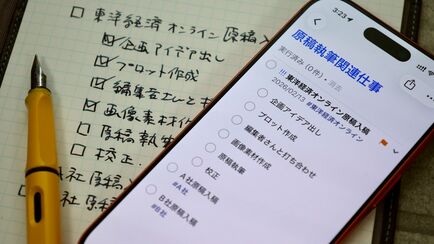 □ 東洋経済オンライン原稿入
☑ 企画アイデア出し
☑ プロット作成
☑ 編集者さんと
☑ 画像素材作
□ 原稿執筆
□ 校正
社原稿入
社原稿
3:23
原稿執筆関連仕事
実行済み (0件)・消去
東洋経済オンライン原稿入稿
2026/02/13 #東洋経済オンライン
企画アイデア出し
プロット作成
編集者さんと打ち合わせ
画像素材作成
原稿執筆
校正
A社原稿入稿
#A社
B社原稿入稿
#B社